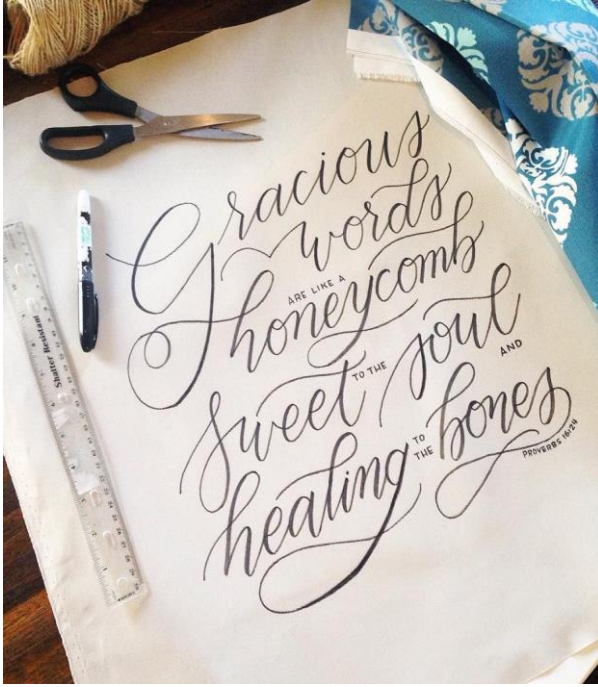 Gracious
words
ARE LIKE A
honeycomb
sweet TO THE soul
AND
healing TO THE bones
PROVERBS 16:24
Shatter Resistant